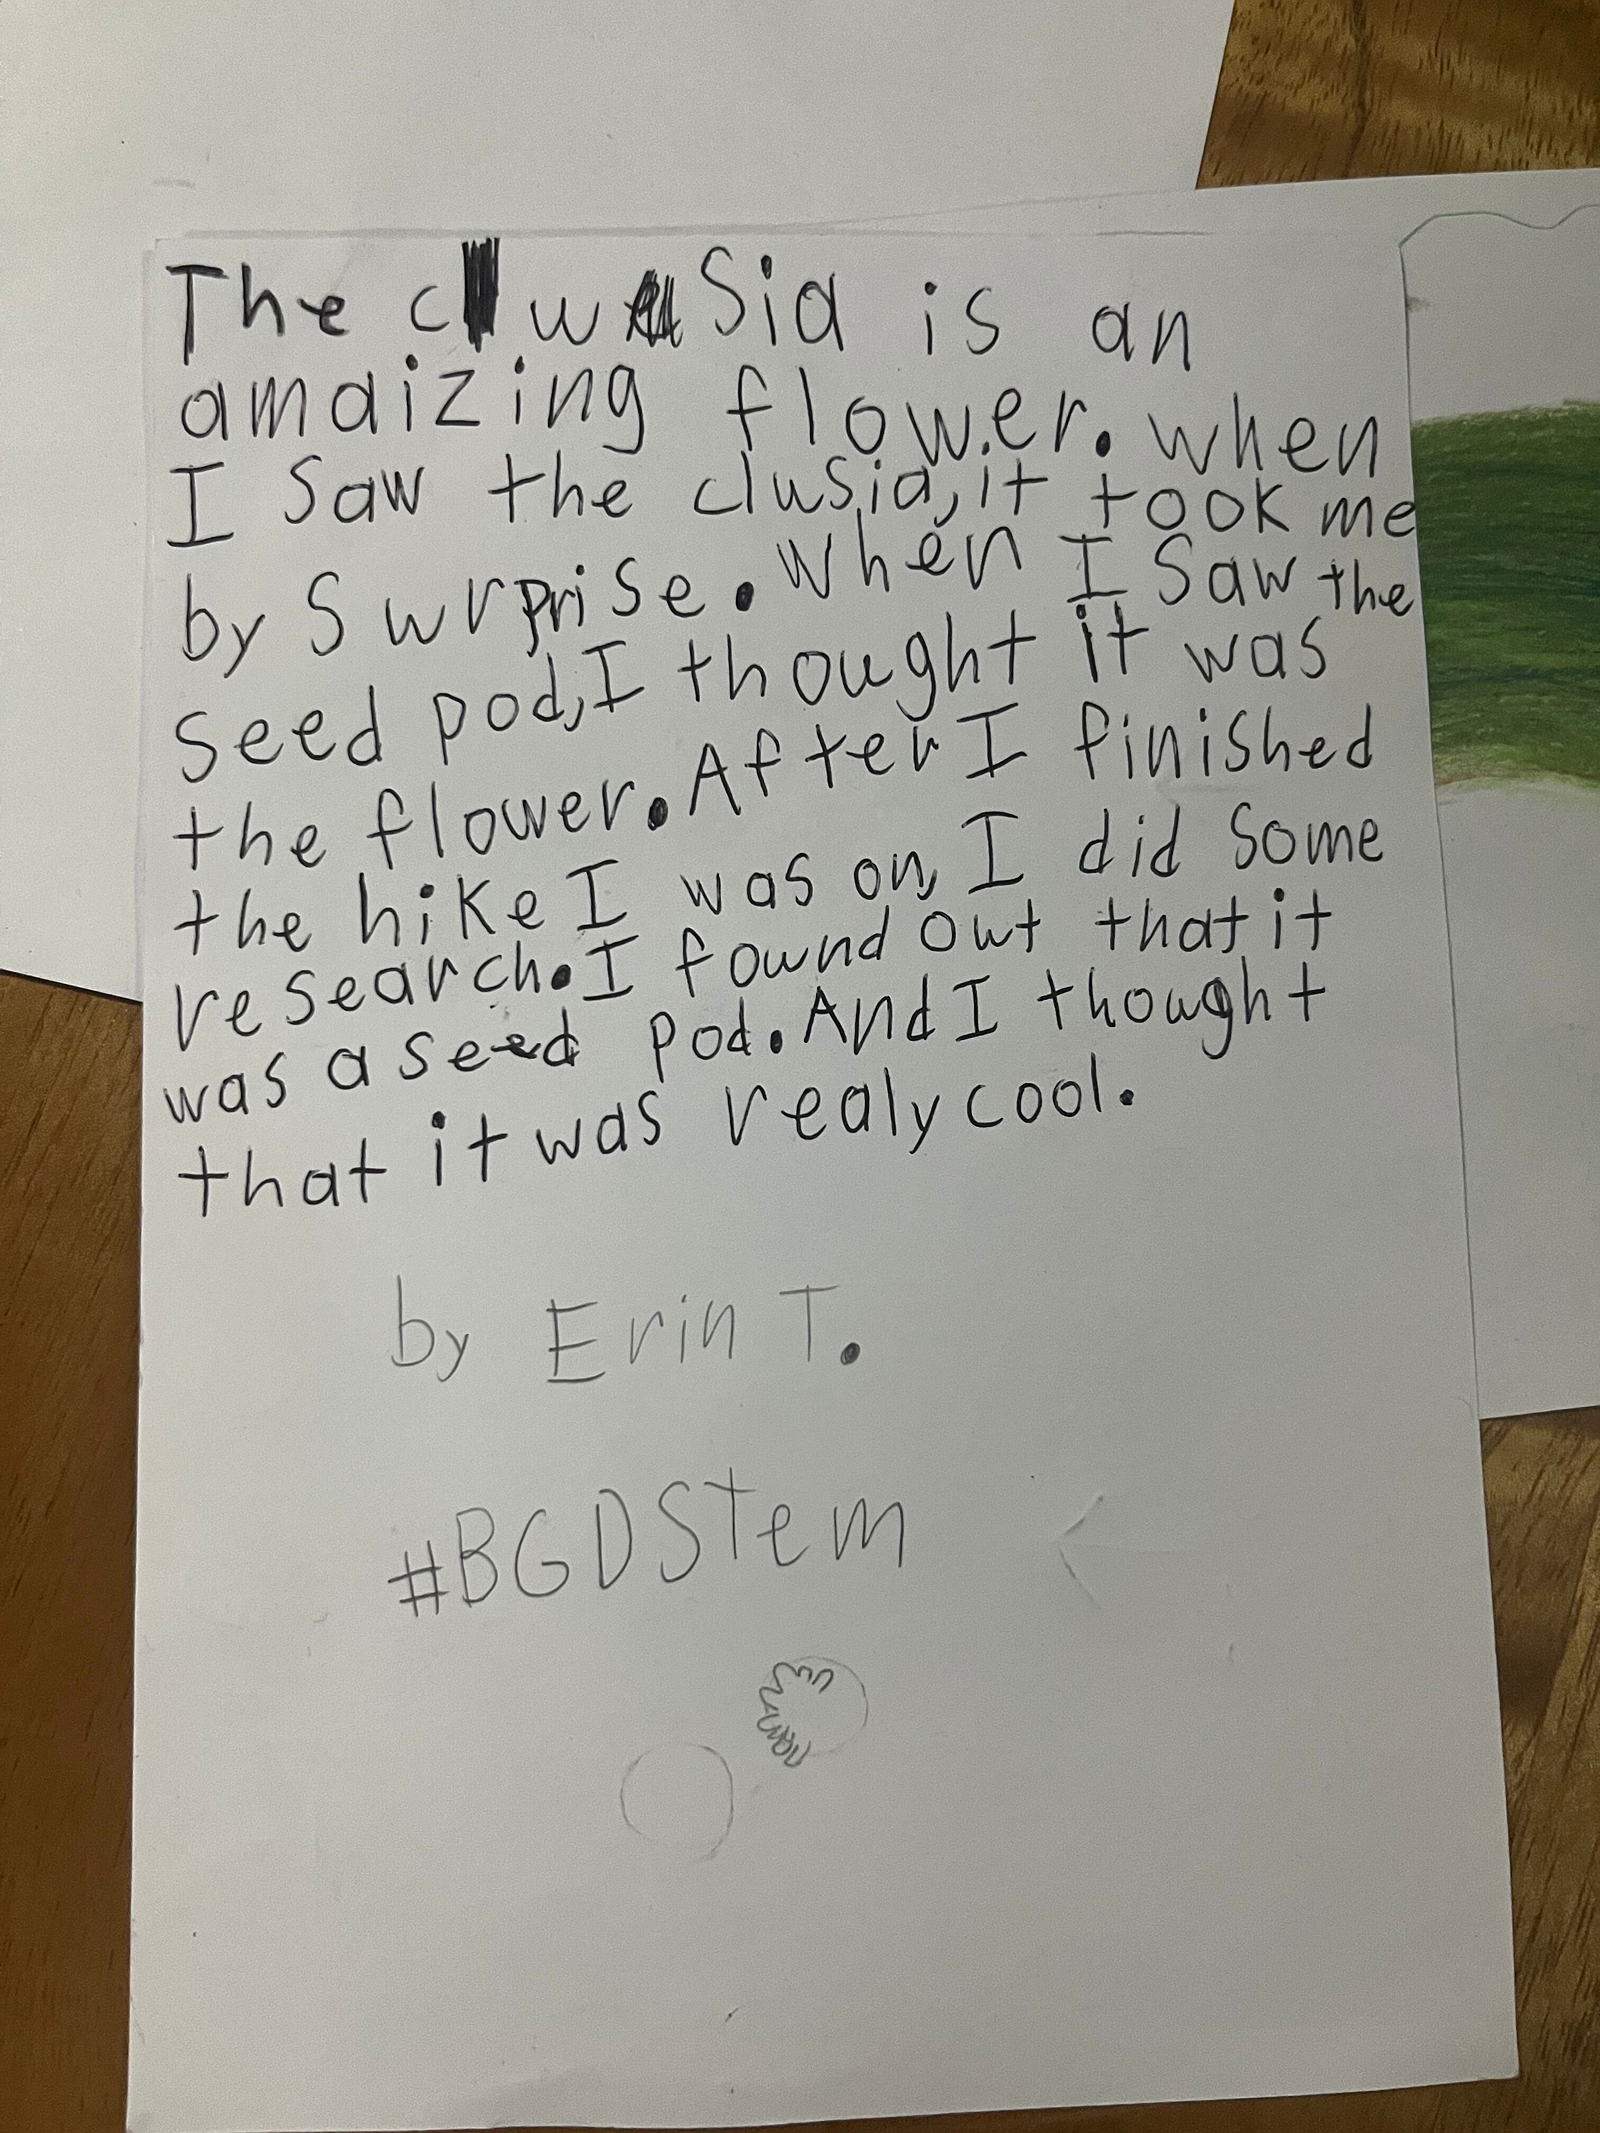 The clusia is an
amaizing flower. when
I saw the clusia, it took me
by surprise. when I saw the
seed pod, I thought it was
the flower. After I finished
the hike I was on, I did some
research. I found out that it
was a seed pod. And I thought
that it was realy cool.
by Erin T.
#BGDSTem